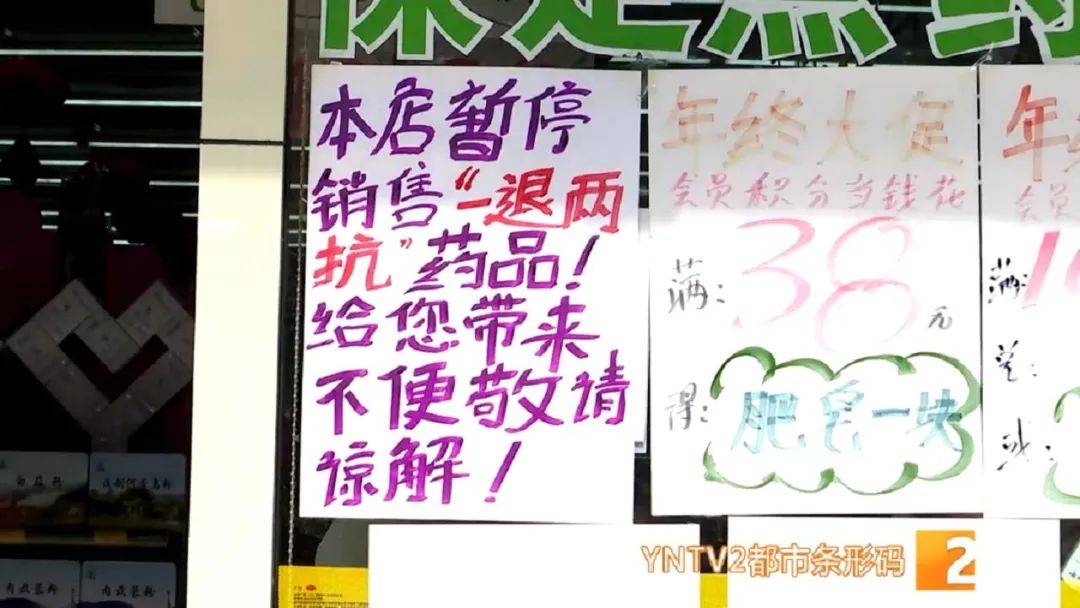 本店暂停
销售“一退两
抗”药品!
给您带来
不便敬请
谅解!
年终大促
会员积分当钱花
满:38元
得:肥皂一块
年
会员
满:1
YNTV2都市条形码 2
内服药粉
内服药粉